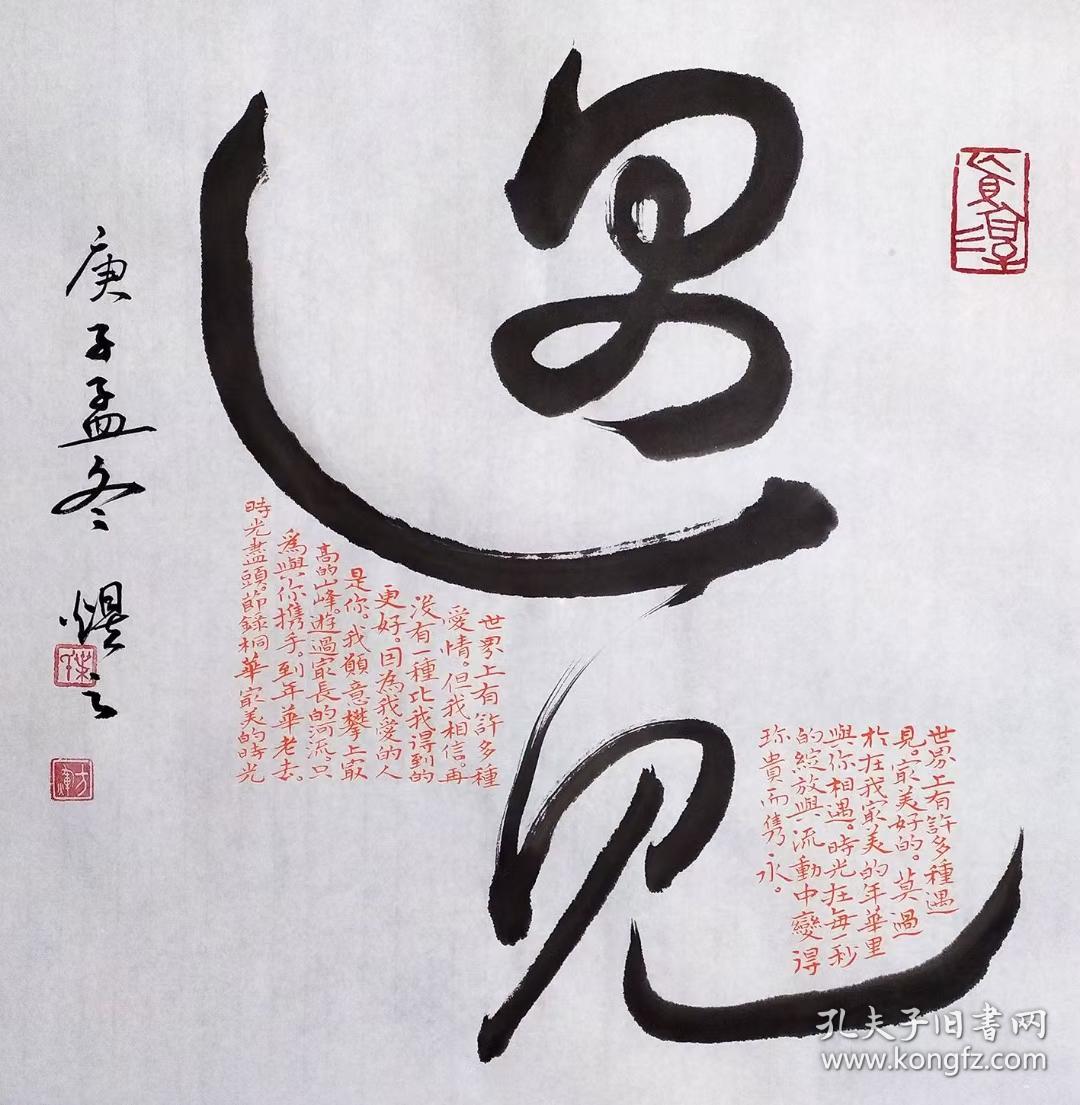 遇見
世界上有許多種遇
見。冣美好的。莫過
於在我冣美的年華里
與你相遇。時光在每一秒
的綻放與流動中變得
珎貴而雋永。
世界上有許多種
愛情。但我相信。再
沒有一種比我得到的
更好。因為我愛的人
是你。我願意攀上冣
高的山峰。遊過冣長的河流。只
為與你携手。到年華老去。
時光盡頭。節錄桐華冣美的時光
庚子孟冬 熤之
孔夫子旧書网
www.kongfz.com